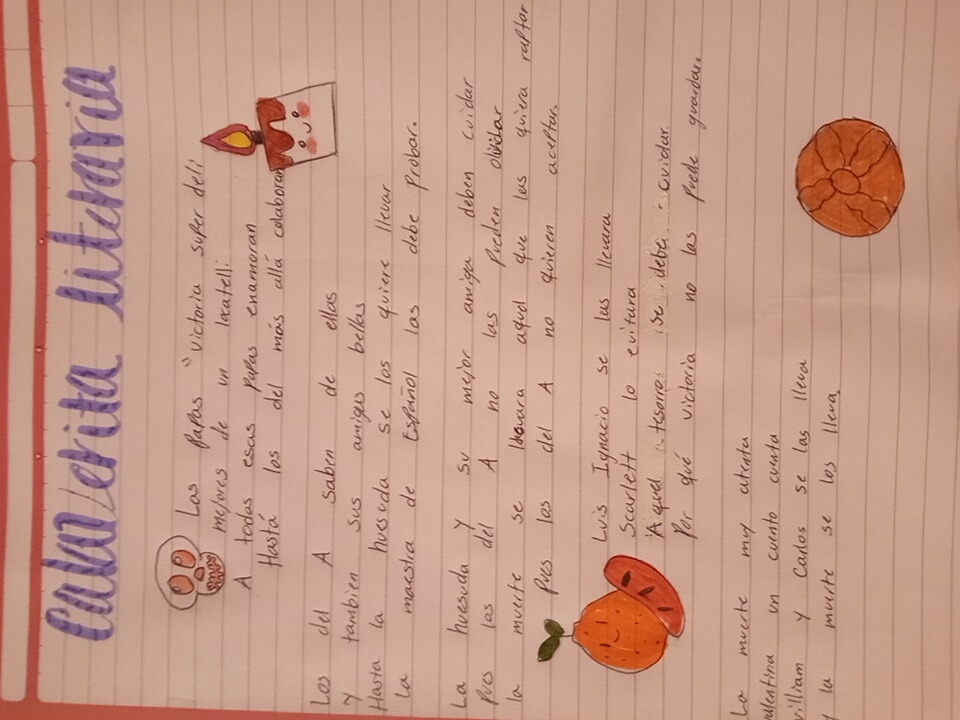 Calaverita literaria
Las papas "victoria super deli
mejores de un locatelli
A todas esas papas enamoran
Hastá los del más allá colaboran
Los del A saben de ellas
y tambien sus amigas bellas
Hasta la huesuda se los quiere llevar
La maestra de Español las debe probar.
La huesuda y su mejor amiga deben cuidar
Pues los del A no las pueden olvidar
la muerte se llevara aquel que las quiera raptar
Pues los del A no quieren aceptar.
Luis Ignacio se las llevara
Scarlett lo evitara
A qual tesoro se debe cuidar
Por qué victoria no las puede guardar.
La muerte muy atenta
valentina un cuento cuenta
william y Carlos se las lleva
y la muerte se los lleva